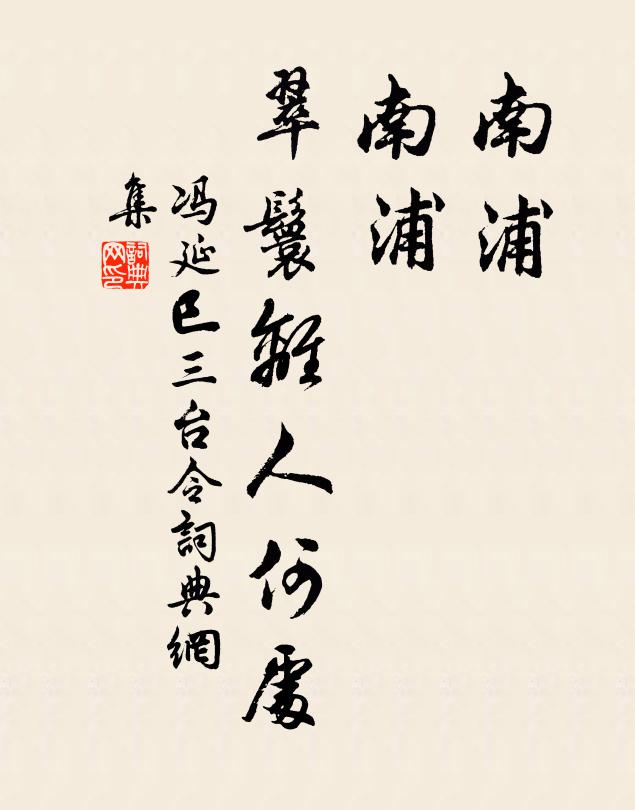 南浦
南浦
翠鬟離人何處
冯延巳三台令詞典網
集
詞典
网印